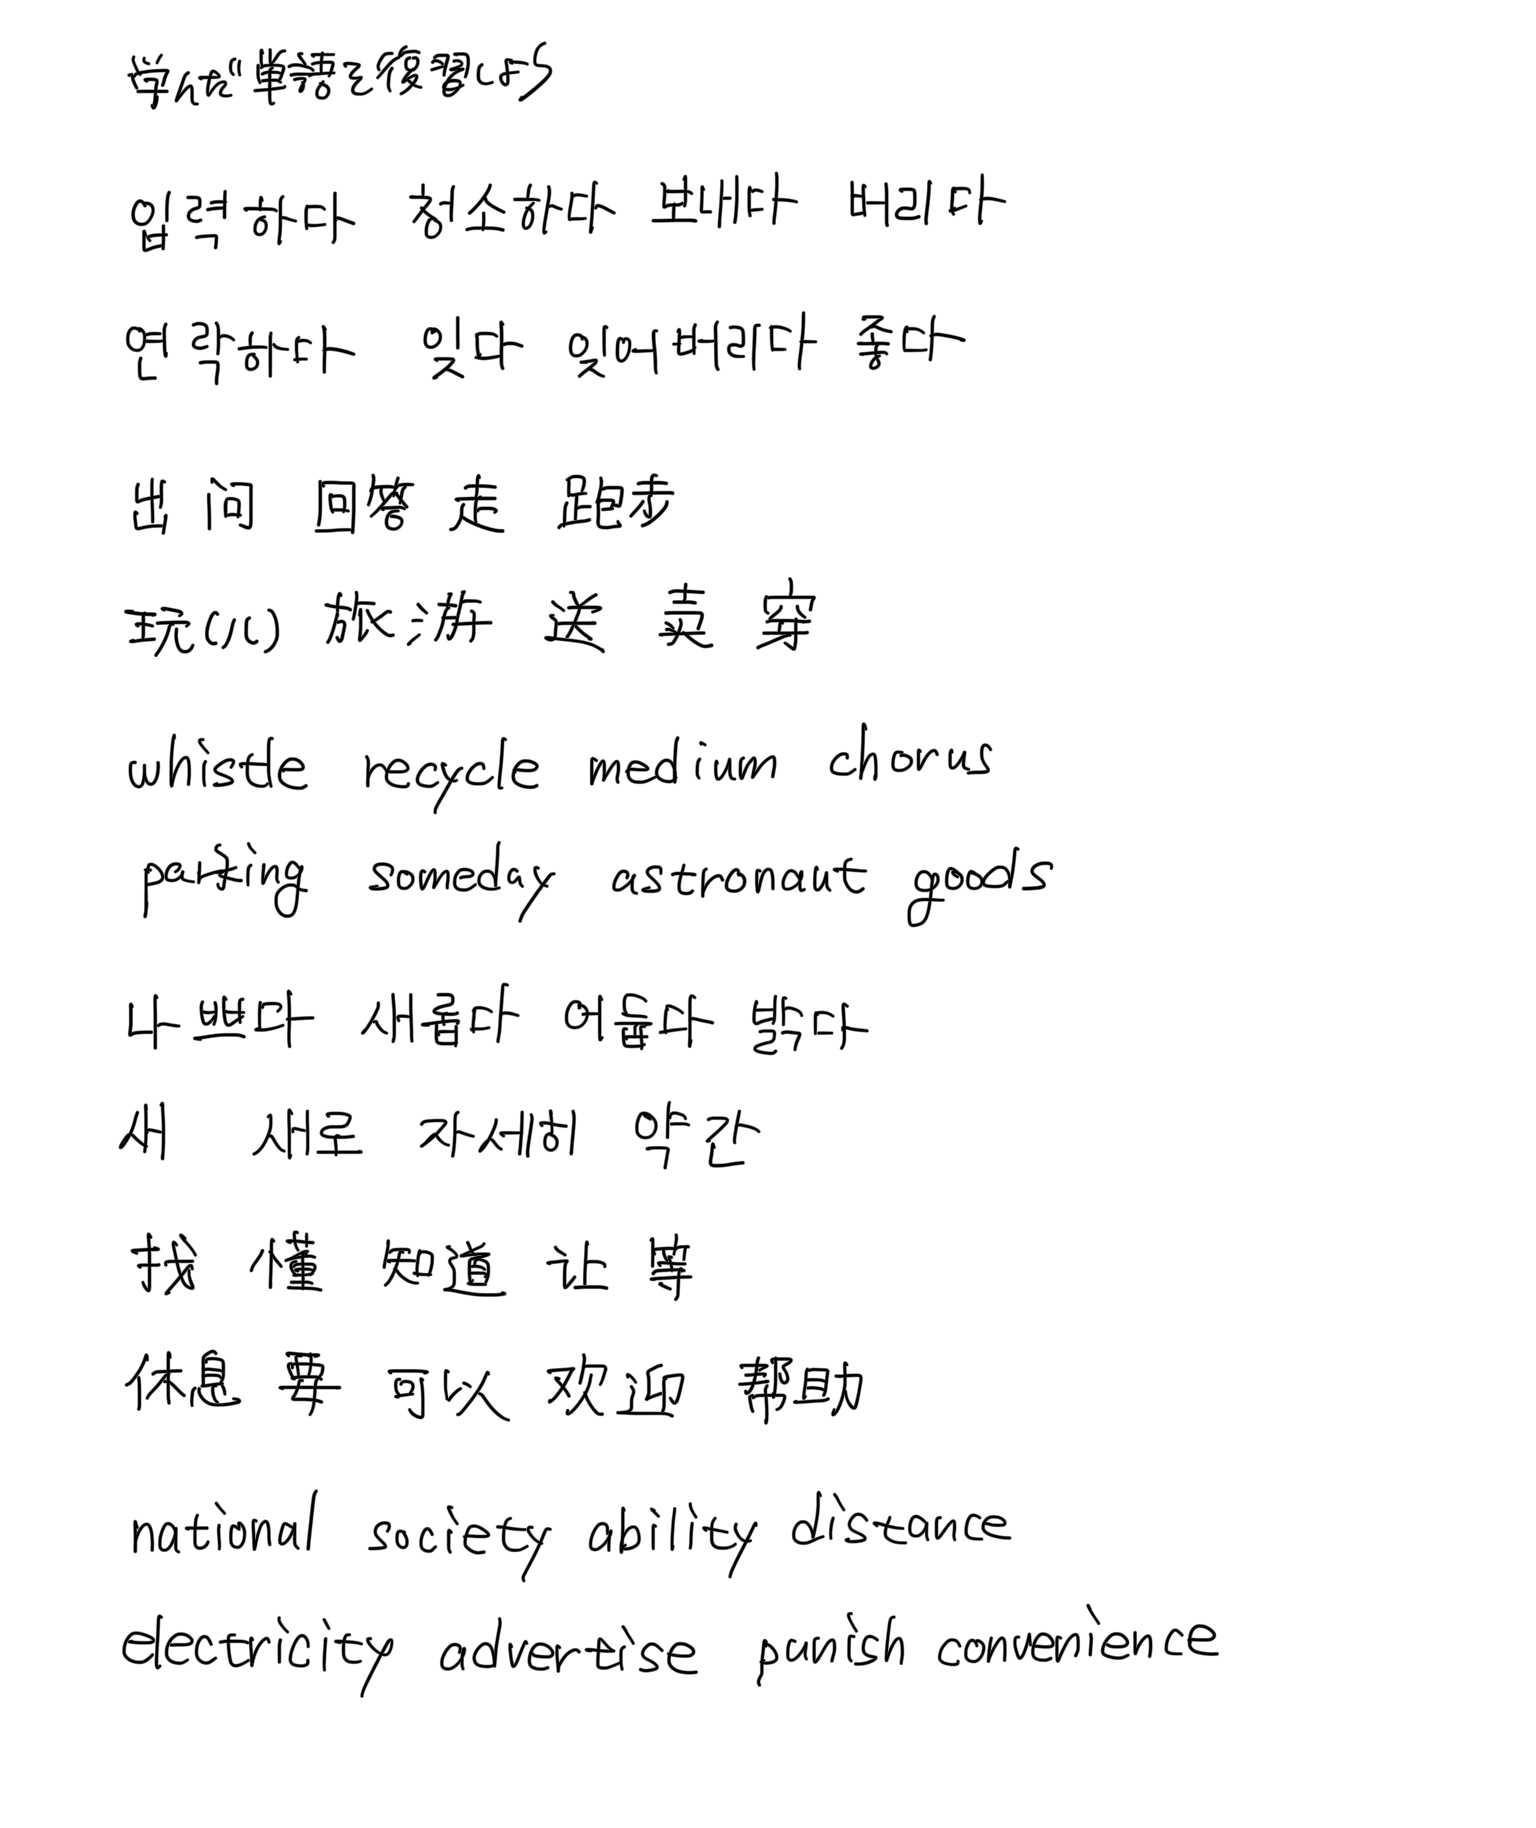 学んだ単語を復習しよう
입력하다 청소하다 보내다 버리다
연락하다 잊다 잊어버리다 좋다
出 问 回答 走 跑步
玩(儿) 旅游 送 卖 穿
whistle recycle medium chorus
parking someday astronaut goods
나쁘다 새롭다 어둡다 밝다
새 새로 자세히 약간
找 懂 知道 让 等
休息 要 可以 欢迎 帮助
national society ability distance
electricity advertise punish convenience